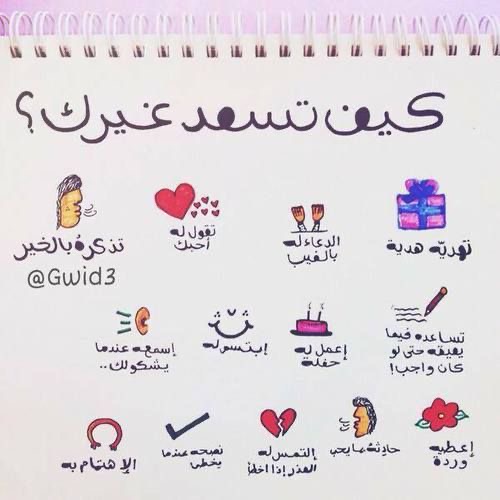 كيف تسعد غيرك؟
تهديه هدية
الدعاء له
بالغيب
تقول له
أحبك
تذكرهُ بالخير
@Gwid3
تساعده فيما
يعيقه حتى لو
كان واجب!
إعمل له
حفلة
إبتسم له
إسمعه عندما
يشكو لك..
إعطيه
وردة
حادِثهُ بما يحب
إلتمس له
العذر إذا اخطأ
نصحه عندما
يخطى
الإهتمام به